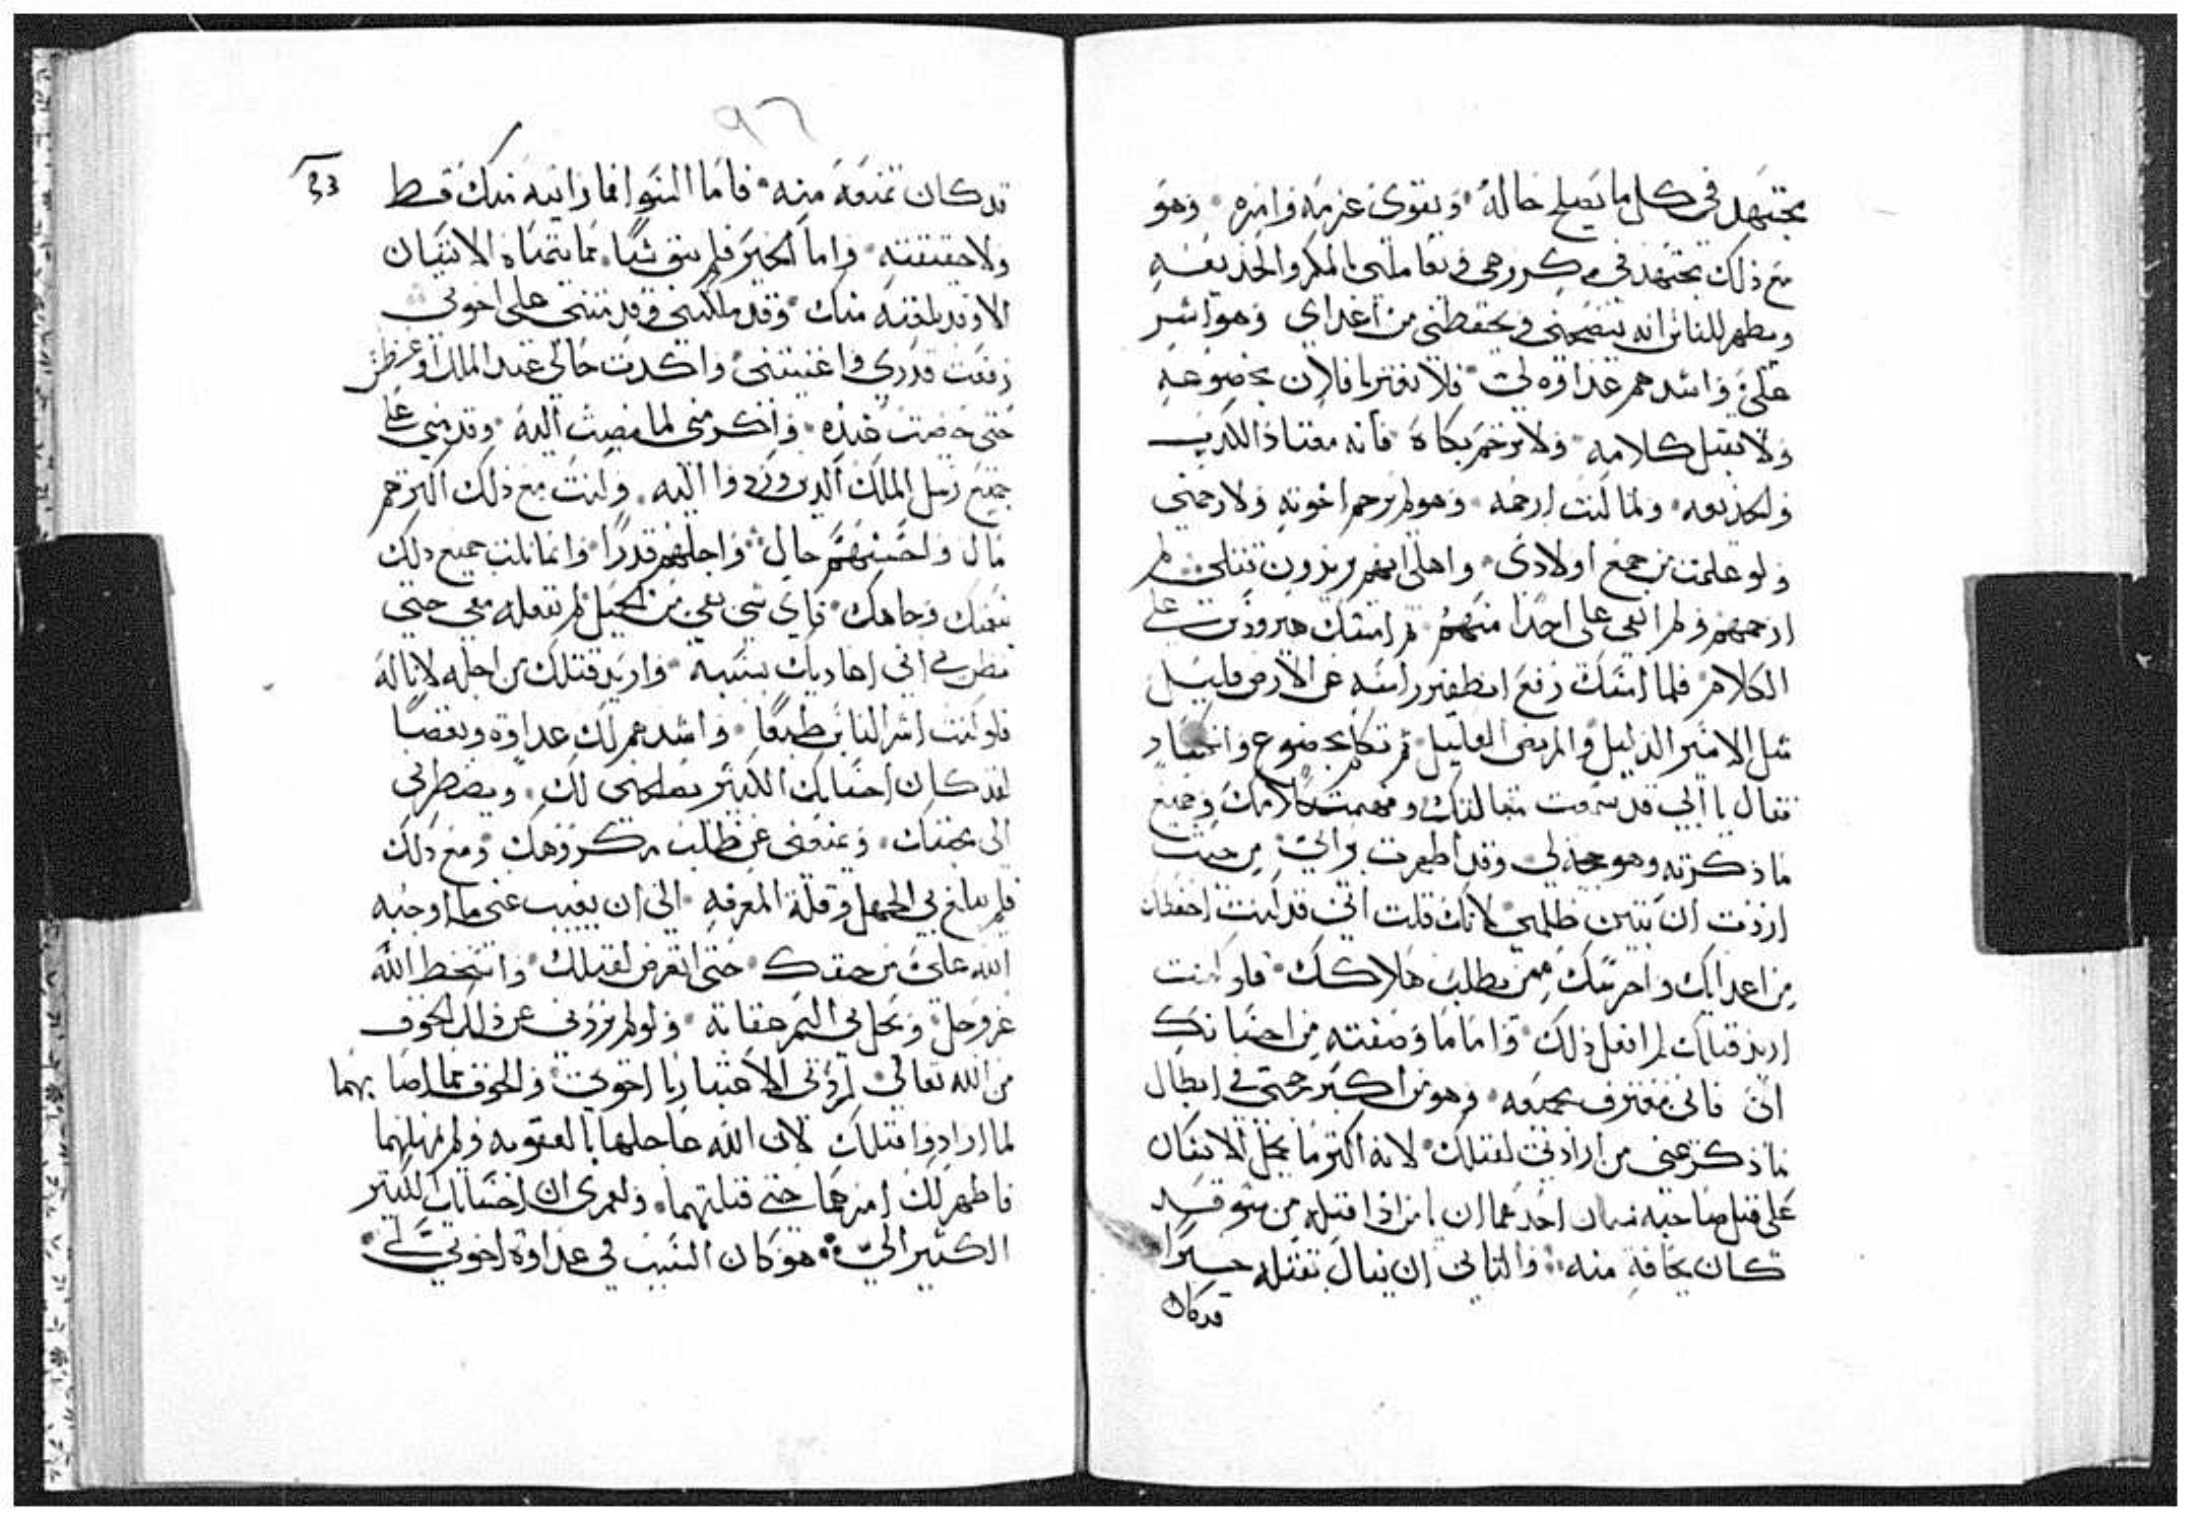 مجتهد في كل ما يصلح حاله ويقوي عزمه وامره وهو
مع ذلك يجتهد في مكروهي ويعاملني بالمكر والخديعه
ويظهر للناس انه ينصحني ويحفظني من اعداي وهو اشر
علي واشدهم عداوه لي فلا تغتر يا فلان بخضوعه
ولا تقبل كلامه ولا ترحم بكاه فانه معتاد الكذب
والخديعه ولما كنت ارحمه وهو لم يرحم اخوته ولا رحمني
ولو علمت من جميع اولادي واهلي انهم يريدون قتلي لم
ارحمهم ولم ابقي على احدا منهم ثم امسك هيرودس عن
الكلام فلما امسك رفع انطفير راسه عن الارض قليل
مثل الاسير الذليل والمريض العليل ثم تكلم بخضوع وانكسار
فقال يا ابي قد سمعت مقالتك وفهمت كلامك وجميع
ما ذكرته وهو حجه لي وقد اظهرت براتي من حيث
اردت ان تبين ظلمي لانك قلت اني قد كنت احفظك
من اعدايك واحرسك ممن يطلب هلاكك فلو كنت
اريد قتلك لم افعل ذلك واما ما وصفته من احسانك
الي فاني معترف بجميعه وهو من اكبر حجتي في ابطال
ما ذكر عني من ارادتي لقتلك لانه اكثر ما يحمل الانسان
على قتل صاحبه سببان احدهما ان يامن اذا قتله من سو قد
كان يخافه منه والتاني ان ينال بقتله خيرا
قد كان
قد كان تمنعه منه فاما السو انما رايته منك قط
ولا حقيقته واما الخير فلم يبق شيا مما يتمناه الانسان
الا وقد بلغته منك وقد ملكتني وقدمتني على اخوتي
رفعت قدري واغنيتني واكدت حالي عند الملك اوغسطس
حتى حضرت عنده واكرمني لما مضيت اليه وقدمني على
جميع رسل الملك الذين وردوا اليه وكنت مع ذلك اكثرهم
مال واحسنهم حال واجلهم قدرا وانما نلت جميع ذلك
بنعمتك وجاهك فاي شي بقي من الجميل لم تفعله معي حتى
تظن في اني اعاديك بسببه واريد قتلك من اجله لاناله
فلو كنت اشر الناس طبعا واشدهم لك عداوه وبغضا
لقد كان احسانك الكثير يصلحني لك ويضطرني
الى محبتك ويمنعني عن طلب مكروهك ومع ذلك
فلم يبلغ بي الجهل وقلة المعرفه الى ان يغيب عني ما اوجبه
الله علي من حقك حتى اتعرض لقتلك واسخط الله
عز وجل ويحل بي اليم عقابه ولو لم يردني عن ذلك الخوف
من الله تعالى لردني الاعتبار با اخوتي والخوف مما اصا بهما
لما ارادوا قتلك لان الله عاجلها بالعقوبه ولم يمهلهما
فاظهر لك امرهما حتى قتلتهما ولعمري ان احسانك الكثير
الكثير الي هو كان السبب في عداوة اخوتي لي